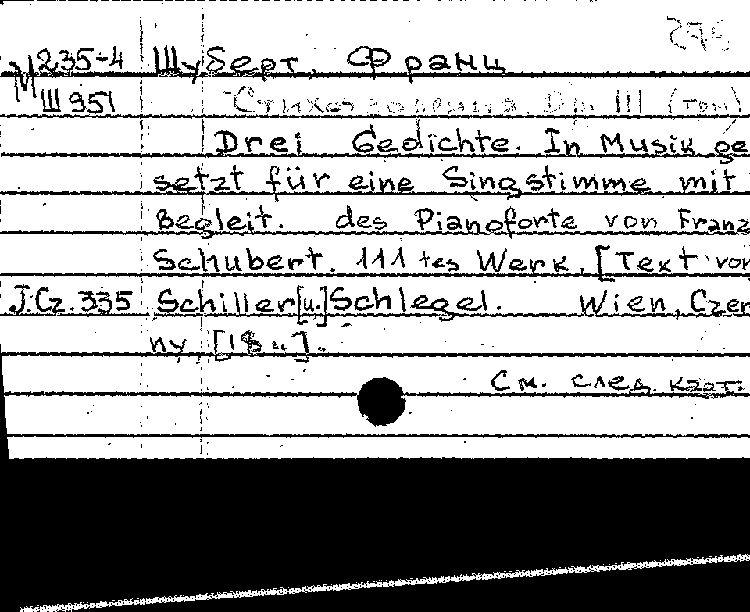 275
М 235-4 Шуберт, Франц
Ш 951 Стихотворения. Op. 111 (три)
Drei Gedichte. In Musik ge
setzt für eine Singstimme mit
Begleit. des Pianoforte von Franz
Schubert. 111 tes Werk. [Text vor
J.Cz.335 Schiller[u.]Schlegel. Wien, Czer
ny, [18 „].
См. след. карт.